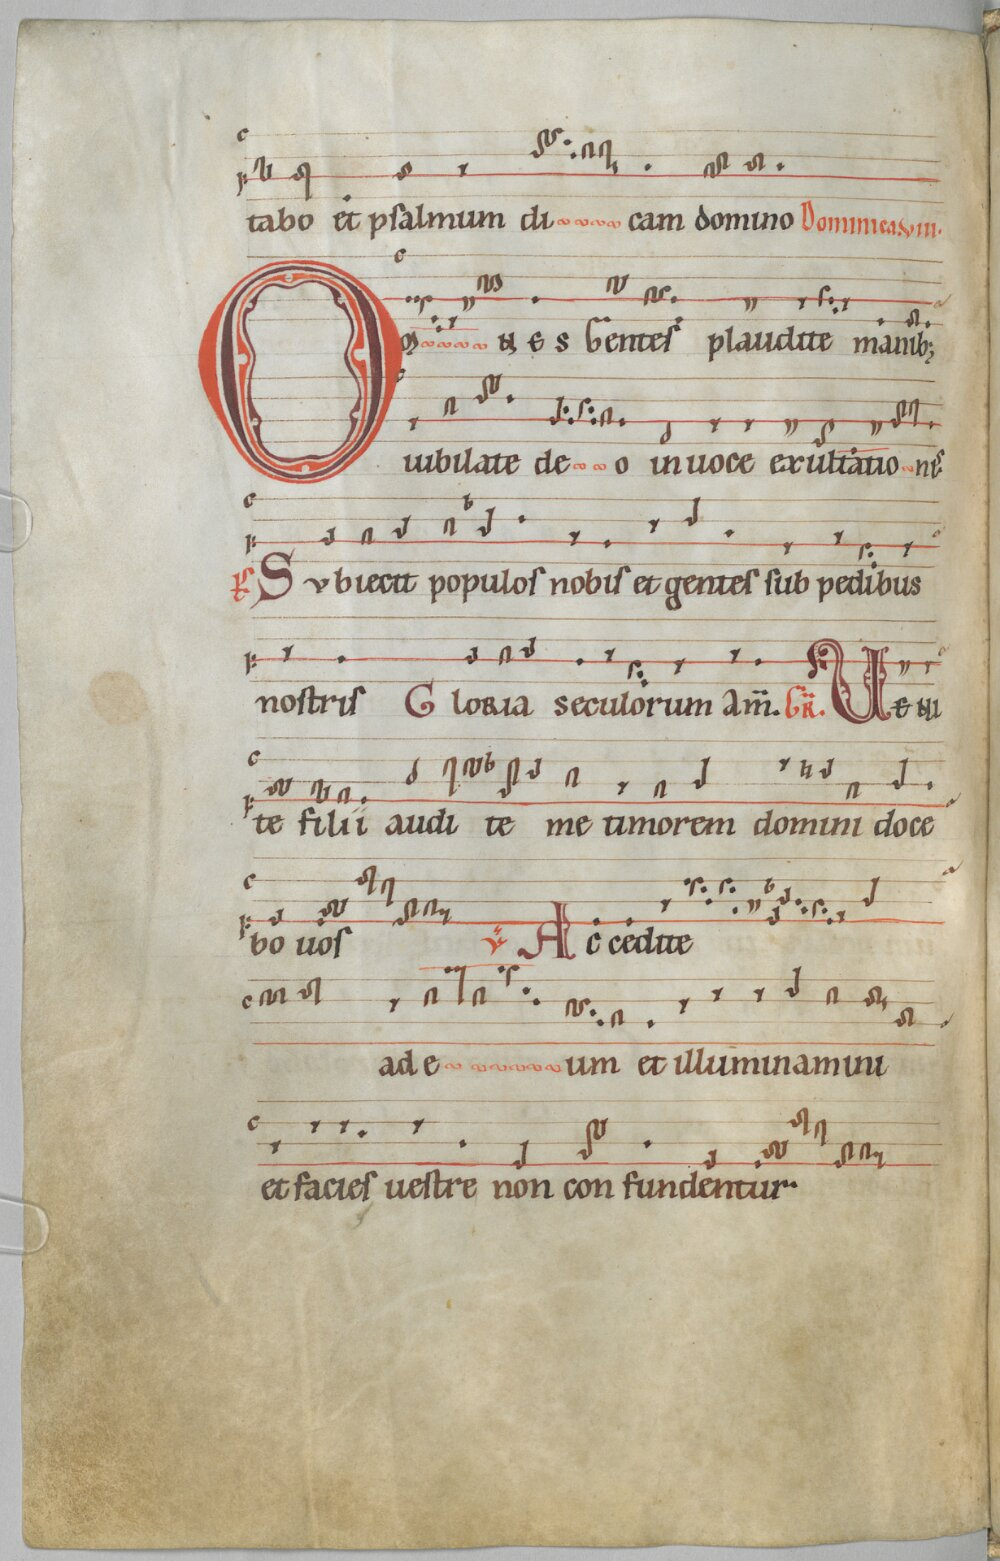 tabo et psalmum di cam domino Dominica viii.
Omnes Gentes plaudite manib;
iubilate de o in uoce exultatio ne
Ps Subiecit populos nobis et gentes sub pedibus
nostris Gloria seculorum Am̅. Gr̅. Ueni
te filii audi te me timorem domini doce
bo uos V̅ Accedite
ad e um et illuminamini
et facies uestre non con fundentur.